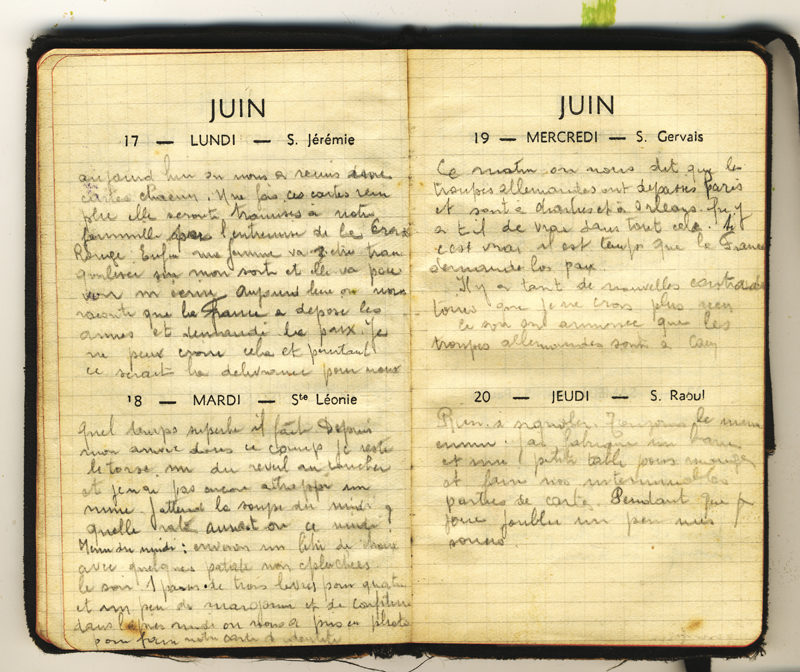 JUIN
17 — LUNDI — S. Jérémie
aujourd hui on nous a remis deux
cartes chacun. Une fois ces cartes rem
plie elle seront transmises à notre
fammille par l'entremise de la Croix
Rouge. Enfin ma femme va être tran
quiliser sur mon sort et elle va pou
voir m'écrire Aujourd hui on nous
raconte que la France a déposé les
armes et demandé la paix. Je
ne peux croire cela et pourtant
ce serait la délivrance pour nous
18 — MARDI — Ste Léonie
Quel temps superbe il fait Depuis
mon arrivé dans ce camp je reste
le torse nu du reveil au coucher
et je n'ai pas encore attrappé un
rhume. J'attend la soupe du midi
quelle rata auront on ce midi ?
Menu du midi : environ un litre de
avec quelques patate non épluchées
le soir 1 pain de trois livres pour quatre
et un peu de margarine et de confiture
dans l'après midi on nous a pris en photo
pour faire notre carte d'identité
JUIN
19 — MERCREDI — S. Gervais
Ce matin on nous dit que les
troupes allemandes ont dépassé Paris
et sont à chartres et à Orléans. Qu'y
a t il de vrai dans tout cela. Si
c'est vrai il est temps que la France
demande la paix
Il y a tant de nouvelles contradic
toires que je ne crois plus rien
Ce soir on annonce que les
troupes allemandes sont à Caen
20 — JEUDI — S. Raoul
Rien à signaler. Toujours le même
ennui. J'ai fabriqué un banc
et une petite table pour manger
et faire nos interminables
parties de carte. Pendant que je
joue j'oublie un peu mes
soucis.